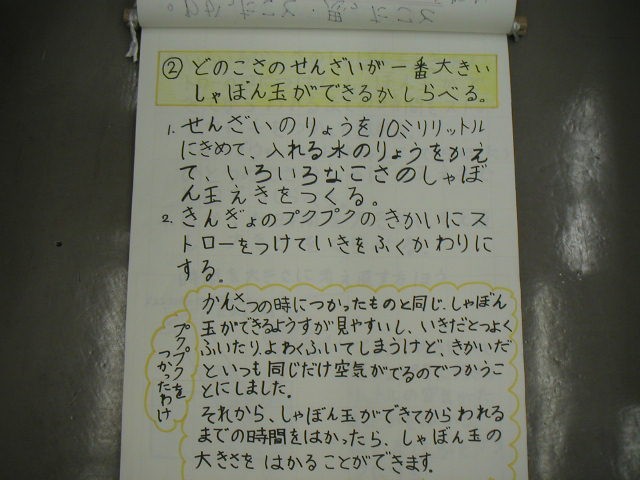 ② どのこさのせんざいが一番大きい
しゃぼん玉ができるかしらべる。
1. せんざいのりょうを10ミリリットル
にきめて、入れる水のりょうをかえ
て、いろいろなこさのしゃぼ
ん玉えきをつくる。
2. きんぎょのブクブクのきかいにス
トローをつけていきをふくかわりに
する。
ブクブクを
つかったわけ
かんさつの時につかったものと同じ、しゃぼん
玉ができるようすが見やすいし、いきだとつよく
ふいたり、よわくふいてしまうけど、きかいだ
といつも同じだけ空気がでるのでつかうこ
とにしました。
それから、しゃぼん玉ができてからわれる
までの時間をはかったら、しゃぼん玉の
大きさをはかることができます。